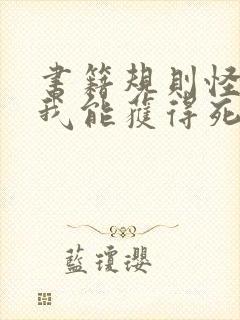 書籍規則怪
我能獲得死
藍瓊瓔